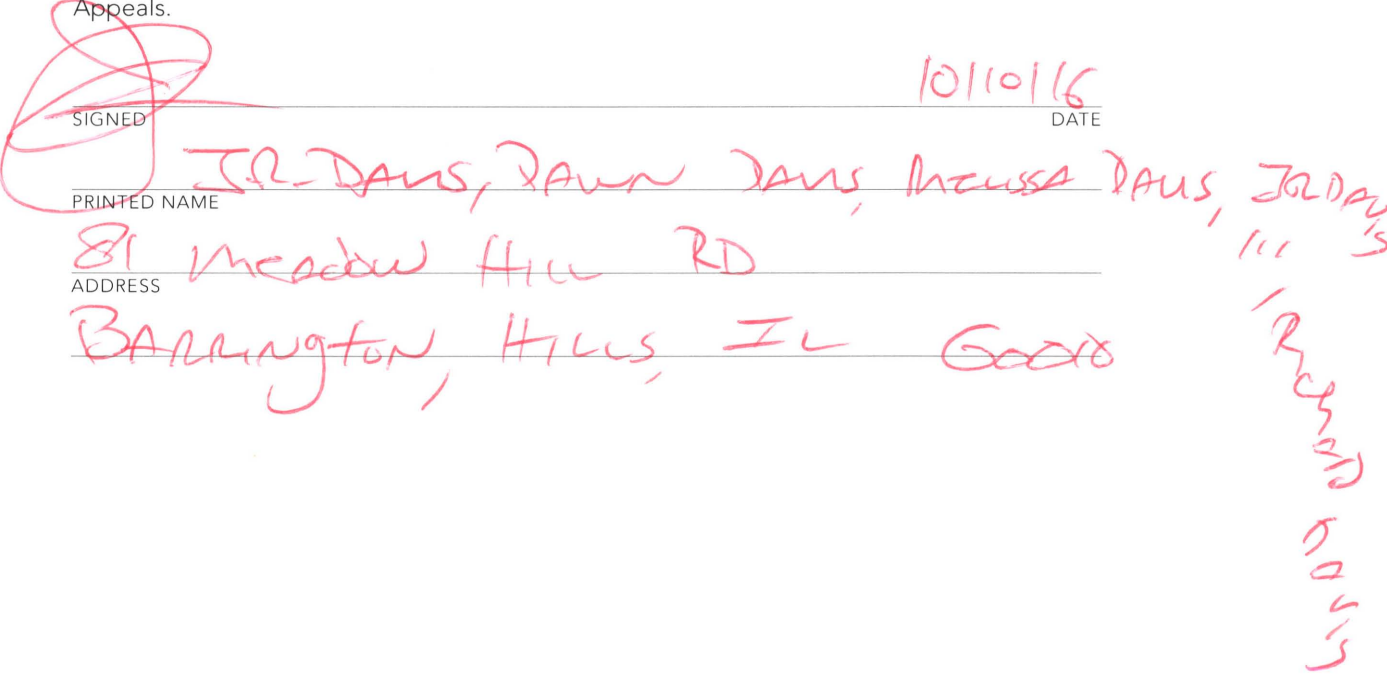 Appeals.
10/10/16
SIGNED DATE
JR DAVIS, DAWN DAVIS, MELISSA DAVIS, JR DAVIS
III, RICHARD DAVIS
PRINTED NAME
81 Meadow Hill RD
ADDRESS
BARRINGTON, HILLS, IL 60010